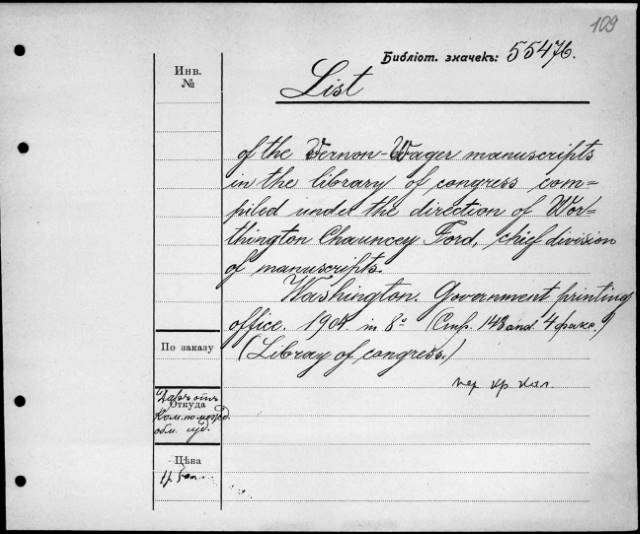 109
Библіот. значекъ: 55476.
Инв.
№
List
of the Vernon-Wager manuscripts
in the library of congress com=
piled under the direction of Wor=
thington Chauncey Ford, chief division
of manuscripts.
Washington. Government printing
office. 1904. in 8° (Стр. 143 and 4 факс.)
(Library of congress.)
По заказу
пер кр кал.
Откуда
Ком. по межд.
обм. изд.
Цѣна